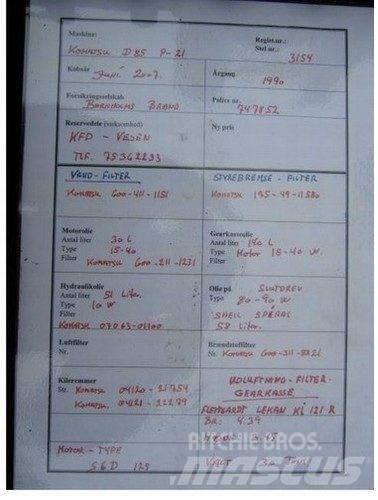 Maskine:
KOMATSU D85 P-21
Regist.nr.:
Stel nr.: 3154
Købsår Juni 2007.
Årgang 1990
Forsikringsselskab
BORNHOLMS BRAND
Police nr. 747852
Reservedele (virksomhed)
KFD - VEJEN
TLF. 75362233
Ny pris
VAND-FILTER
KOMATSU 600-411-1151
STYREBREMSE-FILTER
KOMATSU 195-49-11580
Motorolie
Antal liter 30 L
Type 15-40
Filter KOMATSU 600-211-1231
Gearkasseolie
Antal liter 140 L
Type Motor 15-40 W
Filter
Hydraulikolie
Antal liter 51 Liter.
Type 10 W
Filter
KOMATSU 07063-01100
Olie på SLUTDREV
Type 80-90 W
SHELL
58 Liter.
Luftfilter
Nr.
Brændstoffilter
Nr. KOMATSU 600-311-8321
Kileremmer
Str. KOMATSU 04120-21754
KOMATSU. 04121-22279
UDLUFTNING-FILTER-
GEARKASSE
LEKAN KI 121 R
BR: 4.39
3.45
MOTOR-TYPE
S6D 125
VÆGT
RITCHIE BROS.
MASCUS